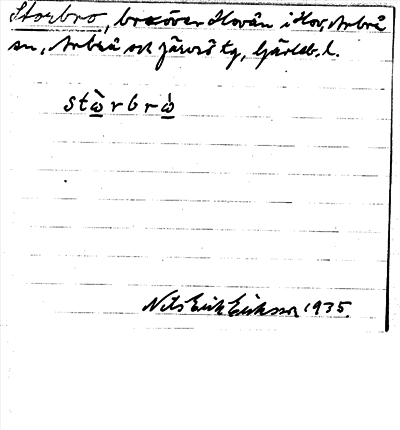 Storbro, bro över Hovån i Hov, Arbrå
sn, Arbrå och Järvsö tg, Gävleb. l.
stὼrbrὼ
Nils Erik Eriksson 1935.